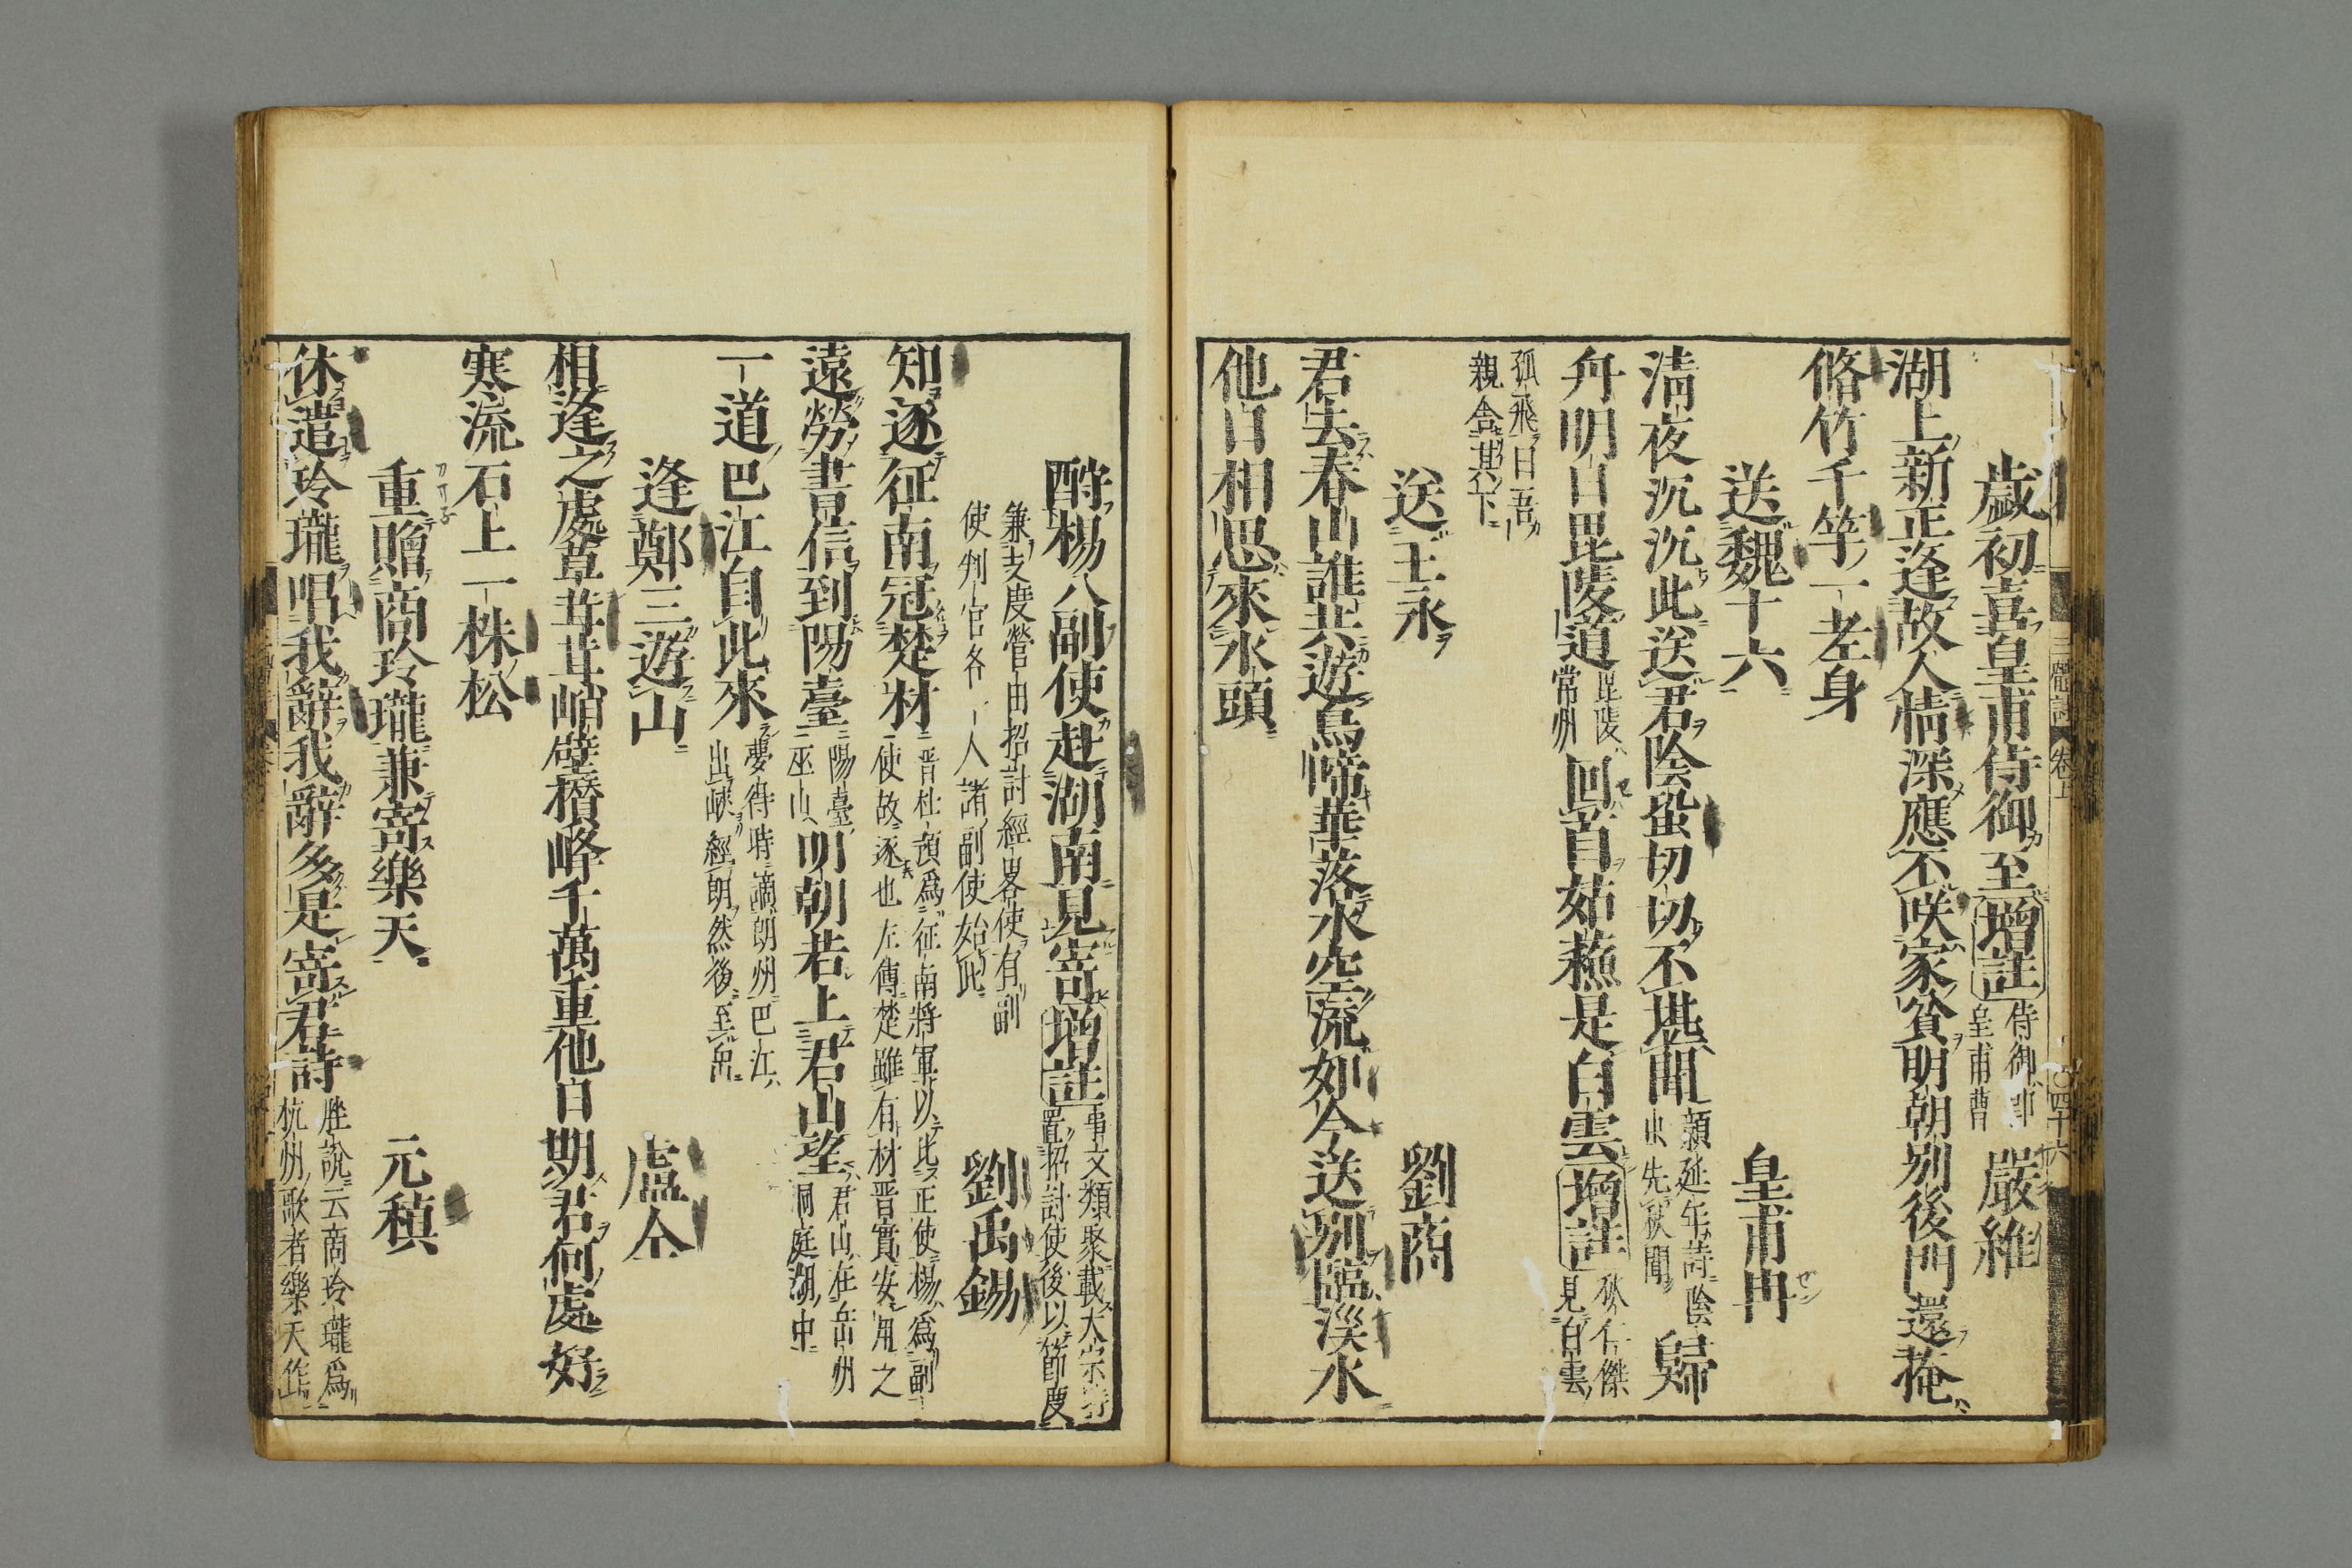 歲初喜皇甫侍御至 增註 侍御卽
皇甫曹 嚴維
湖上新正逢故人情深應不咲家貧明朝別後門還掩
脩竹千竿一老身
送魏十六 皇甫冉
淸夜沉沉此送君陰蛩切切不堪聞 顏延年詩陰
虫先秋聞 歸
舟明日毘陵道 毘陵
常州 回首姑蘓是白雲 增註 狄仁傑
見白雲
孤飛曰吾
親舍其下
送王永 劉商
君去春山誰共遊鳥啼華落水空流如今送別臨溪水
他日相思來水頭
三體詩 卷上 四十六
酧楊八副使赴湖南見寄 增註 事文類聚載太宗時
置招討使後以節度
兼支度營田招討經畧使有副
使判官各一人諸副使始此 劉禹錫
知逐征南冠楚材 晋杜預爲征南將軍以比正使楊爲副
使故逐也左傳楚雖有材晋實安用之
遠勞書信到陽臺 陽臺
巫山 明朝若上君山望 君山在岳州
洞庭湖中
一道巴江自此來 夢得時謫朗州巴江
出峽經朗然後至岳
逢鄭三遊山 盧仝
相逢之處草茸茸峭壁攢峰千萬重他日期君何處好
寒流石上一株松
重贈商玲瓏兼寄樂天 元稹
休遣玲瓏唱我辭我辭多是寄君詩 脞說云商玲瓏爲
杭州歌者樂天作